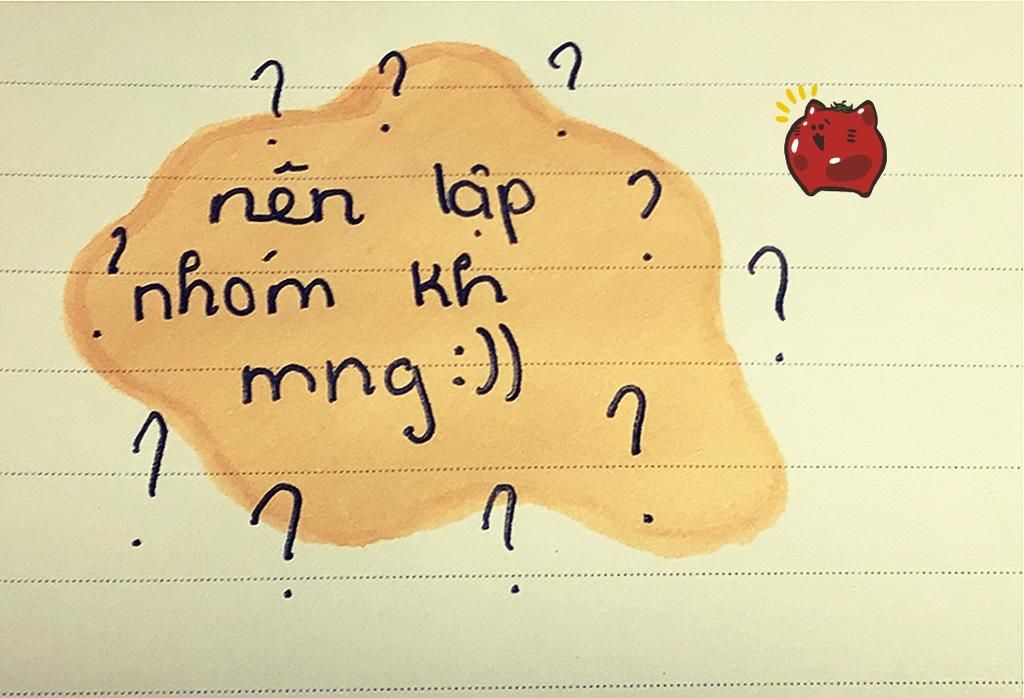 ? ? ?
nên lập ?
? nhóm kh ?
mng :))
? ?
? ?